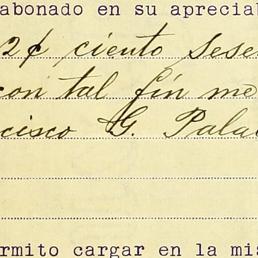 abonado en su apreciab
2¢ ciento sese
con tal fín me
cisco G. Pala
rmito cargar en la mis